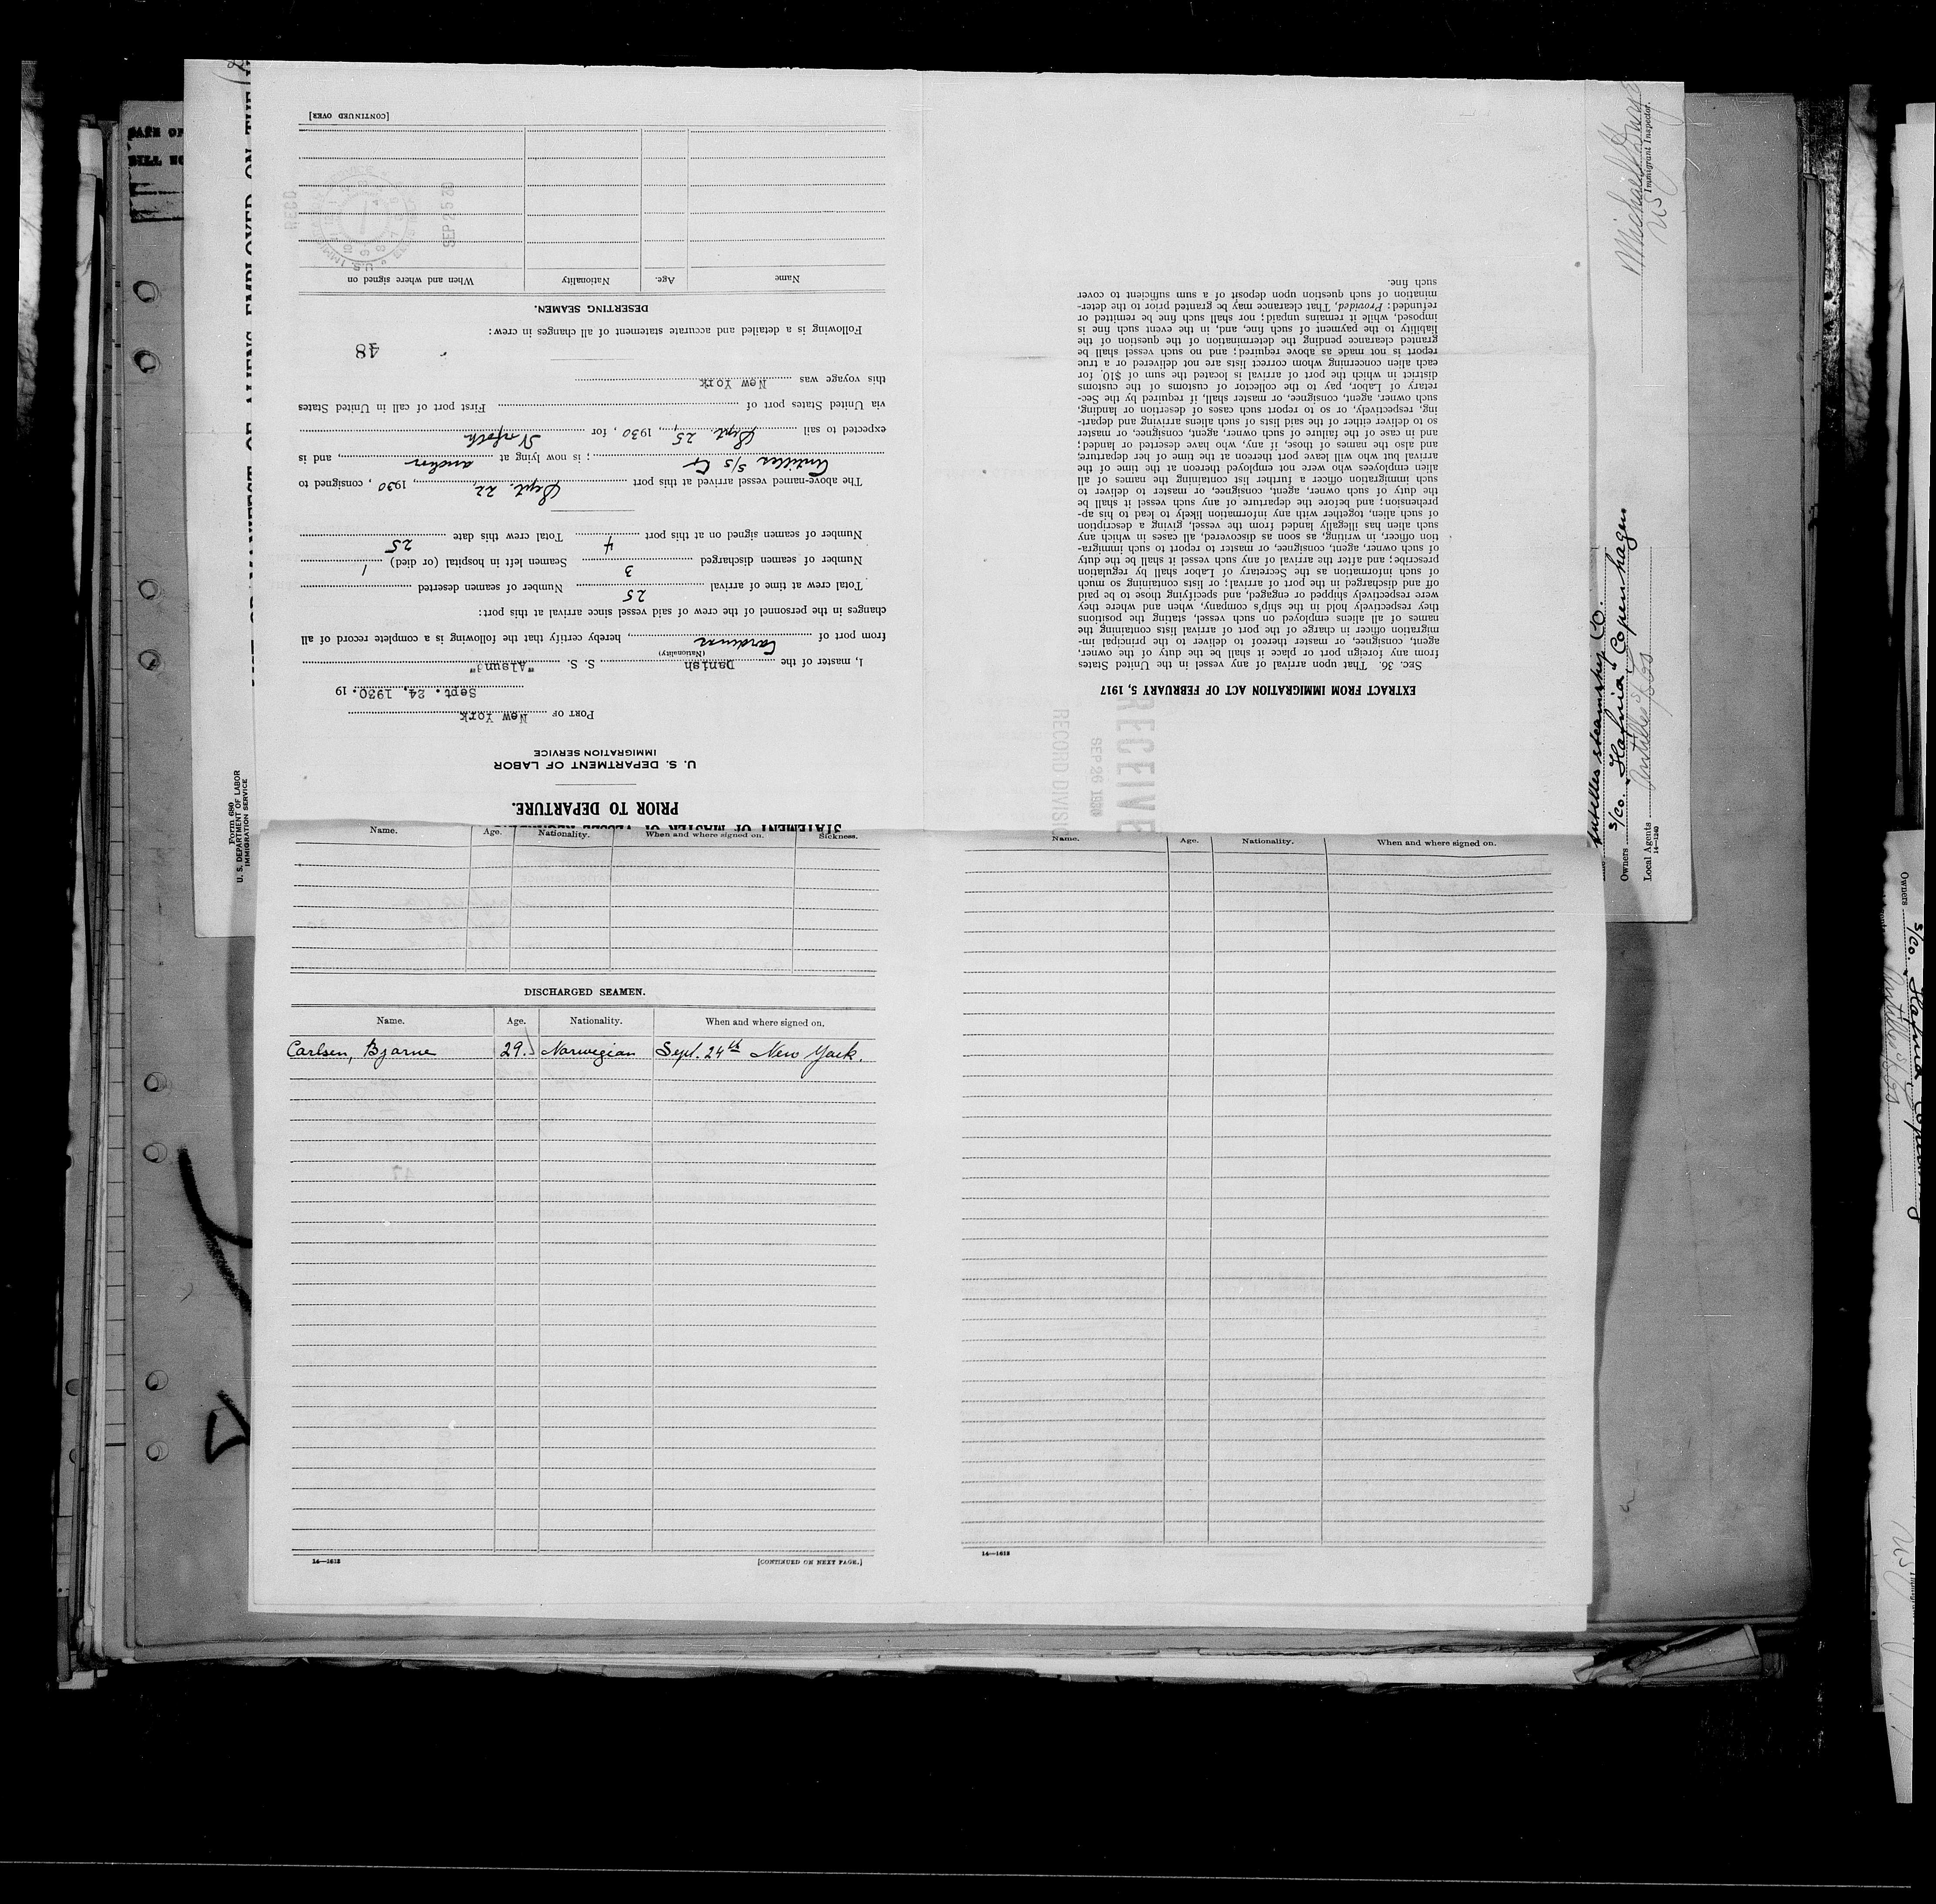 STATEMENT OF MASTER OF VESSEL
PRIOR TO DEPARTURE.
U. S. DEPARTMENT OF LABOR
IMMIGRATION SERVICE
PORT OF New York
Sept. 24, 1930. 19
I, master of the Danish S. S. "Alsund"
(Nationality)
from port of Cardenas, hereby certify that the following is a complete record of all
changes in the personnel of the crew of said vessel since arrival at this port:
Total crew at time of arrival 25 Number of seamen deserted
Number of seamen discharged 3 Seamen left in hospital (or died) 1
Number of seamen signed on at this port 4 Total crew this date 25
The above-named vessel arrived at this port Sept. 22, 1930, consigned to
Antilles S/S Co; is now lying at anchor, and is
expected to sail Sept. 25, 1930, for Norfolk
via United States port of First port of call in United States
this voyage was New York
48
Following is a detailed and accurate statement of all changes in crew:
DESERTING SEAMEN.
Name Age. Nationality When and where signed on
REC'D
SEP 25 30
[CONTINUED OVER]
RECEIVE
SEP 26 1930
RECORD DIVISIO
EXTRACT FROM IMMIGRATION ACT OF FEBRUARY 5, 1917
SEC. 36. That upon arrival of any vessel in the United States
from any foreign port or place it shall be the duty of the owner,
agent, consignee, or master thereof to deliver to the principal im-
migration officer in charge of the port of arrival lists containing the
names of all aliens employed on such vessel, stating the positions
they respectively hold in the ship's company, when and where they
were respectively shipped or engaged, and specifying those to be paid
off and discharged in the port of arrival; or lists containing so much
of such information as the Secretary of Labor shall by regulation
prescribe; and after the arrival of any such vessel it shall be the duty
of such owner, agent, consignee, or master to report to such immigra-
tion officer, in writing, as soon as discovered, all cases in which any
such alien has illegally landed from the vessel, giving a description
of such alien, together with any information likely to lead to his ap-
prehension; and before the departure of any such vessel it shall be
the duty of such owner, agent, consignee, or master to deliver to
such immigration officer a further list containing the names of all
alien employees who were not employed thereon at the time of the
arrival but who will leave port thereon at the time of her departure,
and also the names of those, if any, who have deserted or landed;
and in case of the failure of such owner, agent, consignee, or master
so to deliver either of the said lists of such aliens arriving and depart-
ing, respectively, or so to report such cases of desertion or landing,
such owner, agent, consignee, or master shall, if required by the Sec-
retary of Labor, pay to the collector of customs of the customs
district in which the port of arrival is located the sum of $10 for
each alien concerning whom correct lists are not delivered or a true
report is not made as above required; and no such vessel shall be
granted clearance pending the determination of the question of the
liability to the payment of such fine, and, in the event such fine is
imposed, while it remains unpaid; nor shall such fine be remitted or
refunded: Provided, That clearance may be granted prior to the deter-
mination of such question upon deposit of a sum sufficient to cover
such fine.
Name. Age. Nationality. When and where signed on. Sickness.
DISCHARGED SEAMEN.
Name. Age. Nationality. When and where signed on.
Carlsen, Bjarne 29. Norwegian Sept. 24th New York.
14—1613
[CONTINUED ON NEXT PAGE.]
Name. Age. Nationality. When and where signed on.
14—1613
Form 680
U. S. DEPARTMENT OF LABOR
IMMIGRATION SERVICE
OF ALIENS EMPLOYED ON THE
Antilles steamship Co.
Owners S/Co. "Hafnia" Copenhagen
Local Agents Antilles S/S Co
14—1240
Immigrant Inspector.
Owners S/Co. Hafnia